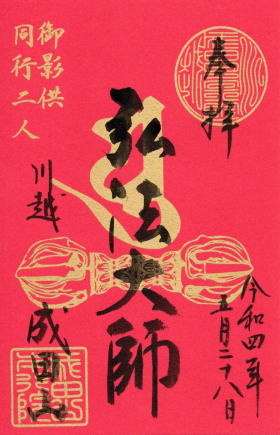 奉拝
令和四年
五月二十八日
弘法大師
川越
成田山
御影供
同行二人